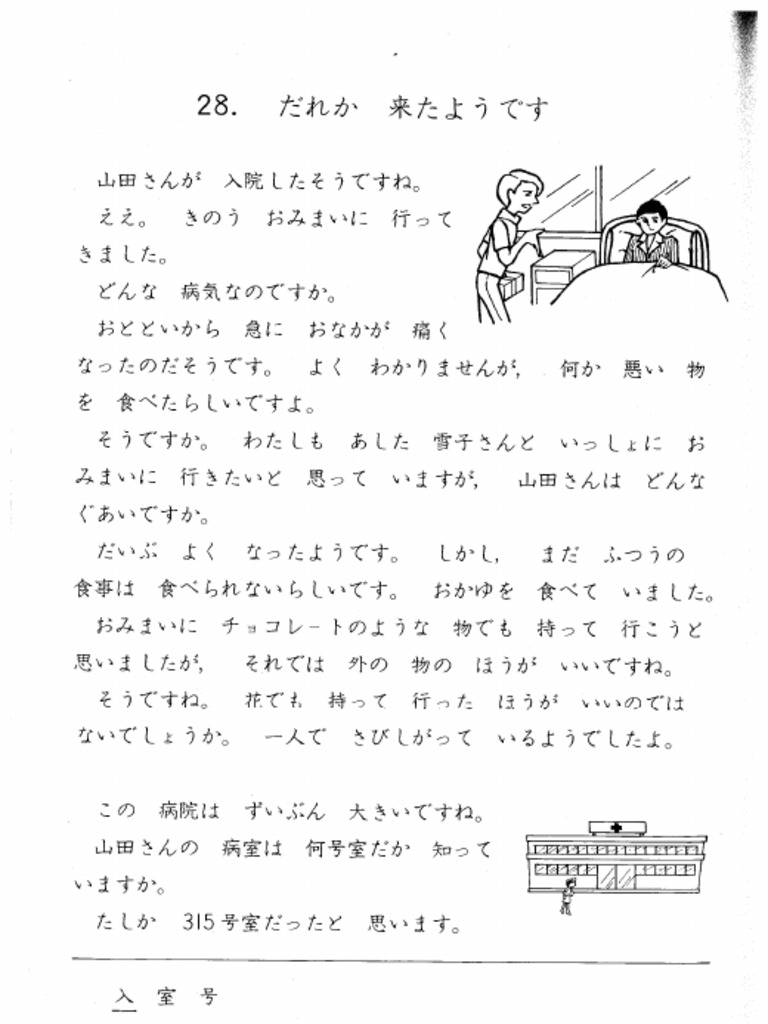 28. だれか 来たようです
山田さんが 入院したそうですね。
ええ。 きのう おみまいに 行って
きました。
どんな 病気なのですか。
おとといから 急に おなかが 痛く
なったのだそうです。 よく わかりませんが, 何か 悪い 物
を 食べたらしいですよ。
そうですか。 わたしも あした 雪子さんと いっしょに お
みまいに 行きたいと 思って いますが, 山田さんは どんな
ぐあいですか。
だいぶ よく なったようです。 しかし, まだ ふつうの
食事は 食べられないらしいです。 おかゆを 食べて いました。
おみまいに チョコレートのような 物でも 持って 行こうと
思いましたが, それでは 外の 物の ほうが いいですね。
そうですね。 花でも 持って 行った ほうが いいのでは
ないでしょうか。 一人で さびしがって いるようでしたよ。
この 病院は ずいぶん 大きいですね。
山田さんの 病室は 何号室だか 知って
いますか。
たしか 315号室だったと 思います。
入 室 号